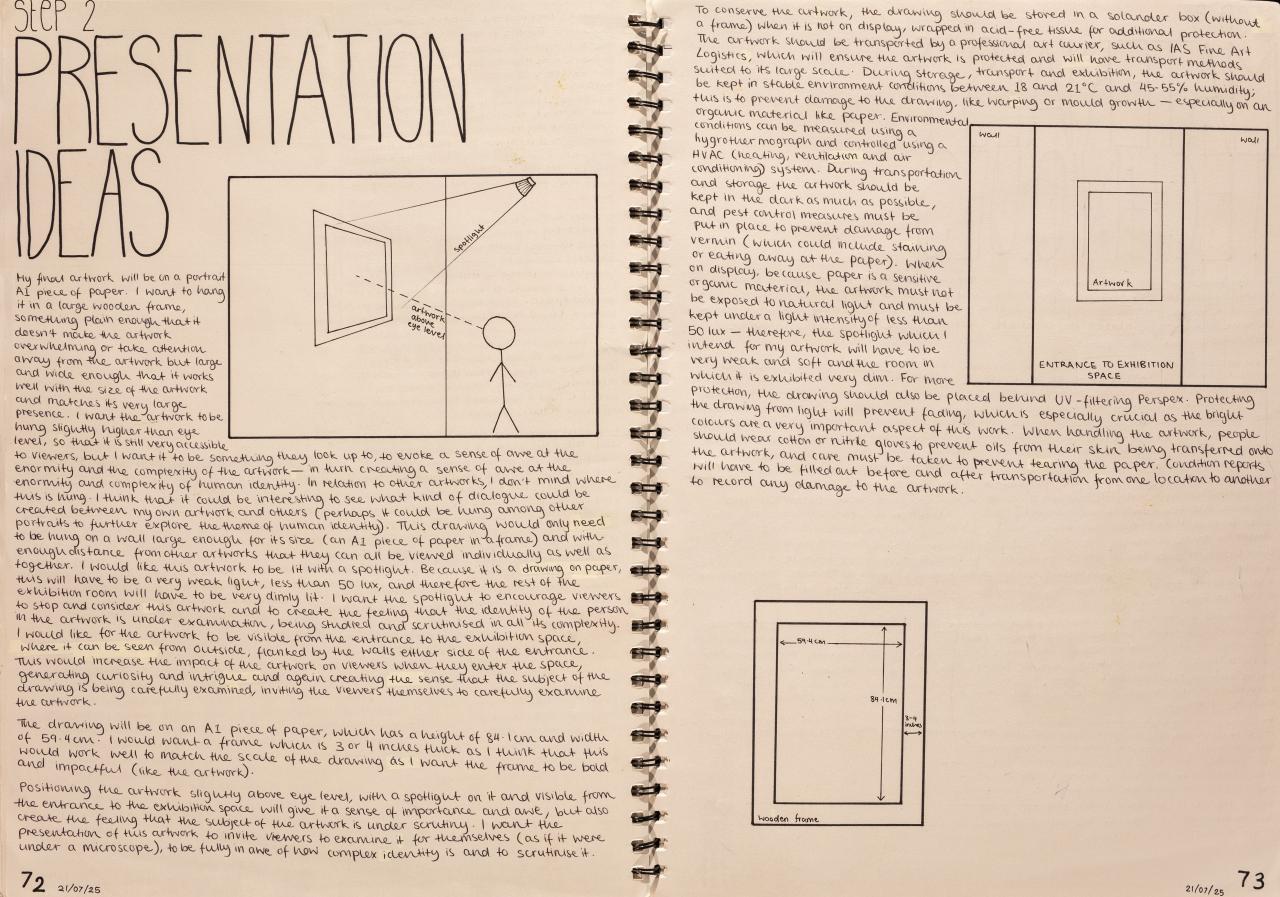 Step 2
PRESENTATION
IDEAS
My final artwork will be on a portrait
A1 piece of paper. I want to hang
it in a large wooden frame,
something plain enough that it
doesn't make the artwork
overwhelming or take attention
away from the artwork but large
and wide enough that it works
well with the size of the artwork
and matches its very large
presence. I want the artwork to be
hung slightly higher than eye
level, so that it is still very accessible
to viewers, but I want it to be something they look up to, to evoke a sense of awe at the
enormity and the complexity of the artwork — in turn creating a sense of awe at the
enormity and complexity of human identity. In relation to other artworks, I don't mind where
this is hung. I think that it could be interesting to see what kind of dialogue could be
created between my own artwork and others (perhaps it could be hung among other
portraits to further explore the theme of human identity). This drawing would only need
to be hung on a wall large enough for its size (an A1 piece of paper in a frame) and with
enough distance from other artworks that they can all be viewed individually as well as
together. I would like this artwork to be lit with a spotlight. Because it is a drawing on paper,
this will have to be a very weak light, less than 50 lux, and therefore the rest of the
exhibition room will have to be very dimly lit. I want the spotlight to encourage viewers
to stop and consider this artwork and to create the feeling that the identity of the person
in the artwork is under examination, being studied and scrutinised in all its complexity.
I would like for the artwork to be visible from the entrance to the exhibition space,
where it can be seen from outside, flanked by the walls either side of the entrance.
This would increase the impact of the artwork on viewers when they enter the space,
generating curiosity and intrigue and again creating the sense that the subject of the
drawing is being carefully examined, inviting the viewers themselves to carefully examine
the artwork.
The drawing will be on an A1 piece of paper, which has a height of 84.1cm and width
of 59.4cm. I would want a frame which is 3 or 4 inches thick as I think that this
would work well to match the scale of the drawing as I want the frame to be bold
and impactful (like the artwork).
Positioning the artwork slightly above eye level, with a spotlight on it and visible from
the entrance to the exhibition space will give it a sense of importance and awe, but also
create the feeling that the subject of the artwork is under scrutiny. I want the
presentation of this artwork to invite viewers to examine it for themselves (as if it were
under a microscope), to be fully in awe of how complex identity is and to scrutinise it.
72 21/07/25
spotlight
artwork
above
eye level
To conserve the artwork, the drawing should be stored in a solander box (without
a frame) when it is not on display, wrapped in acid-free tissue for additional protection.
The artwork should be transported by a professional art courier, such as IAS Fine Art
Logistics, which will ensure the artwork is protected and will have transport methods
suited to its large scale. During storage, transport and exhibition, the artwork should
be kept in stable environment conditions between 18 and 21°C and 45-55% humidity;
this is to prevent damage to the drawing, like warping or mould growth — especially on an
organic material like paper. Environmental
conditions can be measured using a
hygrothermograph and controlled using a
HVAC (heating, ventilation and air
conditioning) system. During transportation
and storage the artwork should be
kept in the dark as much as possible,
and pest control measures must be
put in place to prevent damage from
vermin (which could include staining
or eating away at the paper). When
on display, because paper is a sensitive
organic material, the artwork must not
be exposed to natural light and must be
kept under a light intensity of less than
50 lux — therefore, the spotlight which I
intend for my artwork will have to be
very weak and soft and the room in
which it is exhibited very dim. For more
protection, the drawing should also be placed behind UV-filtering Perspex. Protecting
the drawing from light will prevent fading, which is especially crucial as the bright
colours are a very important aspect of this work. When handling the artwork, people
should wear cotton or nitrile gloves to prevent oils from their skin being transferred onto
the artwork, and care must be taken to prevent tearing the paper. Condition reports
will have to be filled out before and after transportation from one location to another
to record any damage to the artwork.
wall
wall
Artwork
ENTRANCE TO EXHIBITION
SPACE
59.4cm
84.1cm
3-4
inches
wooden frame
21/07/25 73